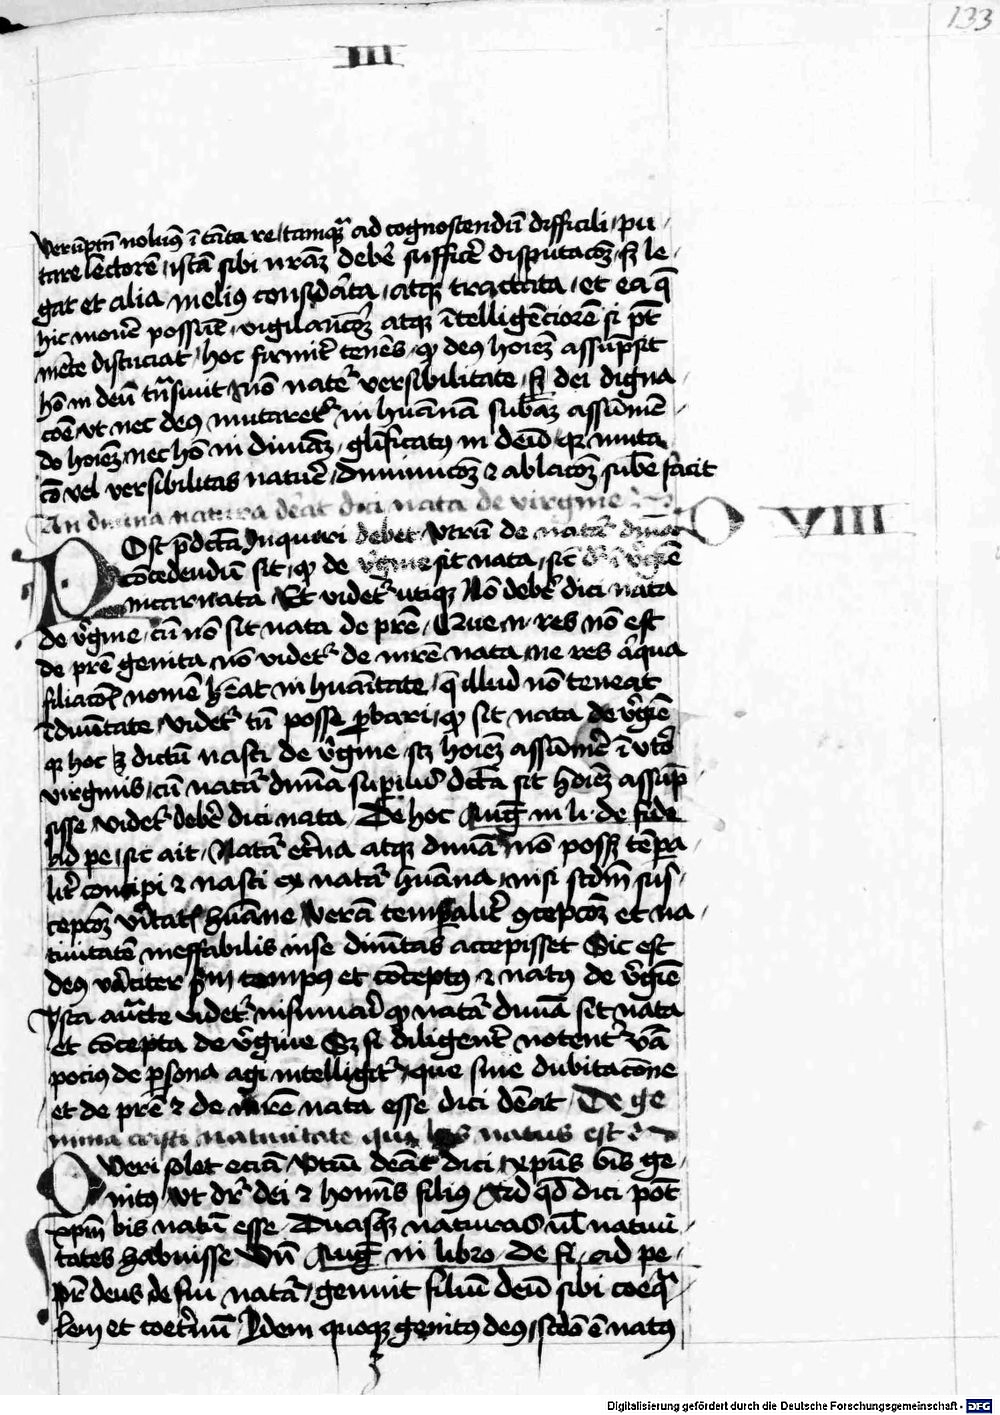 133
III
verūptn̄ nolum⁹ ī tāta re, tamqᷓ ad cognoscendū difficili, pu-
tare lectorē, istā sibi nrāꝫ debē sufficē disputacōꝫ, sꝫ le-
gat et alia melius considāta, atqꝫ tractata, et ea q̄
hic mouē possūt, vigilancōꝫ atqꝫ ītelligēciorē si pt̄
mēte discuciat, hoc firmit᷑ tenēs, ꝙ deꝰ hoīeꝫ assūpsit
hō in deū trāsiuit nō nate᷑ versibilitate, sꝫ dei digna
cōe, vt nec deꝰ mutaret᷑ in huānā subāꝫ assūmē-
do hoīeꝫ, nec hō in diuināꝫ, glīficatꝰ in deū, qꝛ muta
cō vel versibilitas nature, diminucōꝫ ⁊ ablacōꝫ sube facit
An diuina natura debeat dici nata de virgine
VIIII
Post p̄dcā Inquiri debet, Vtrū de nata᷑ diuīa
cōcedendū sit, ꝙ de v̄gine sit nata, sic dr̄ v̄gīe
incarnata. Et videt᷑ utiqꝫ Nō debē dici nata
de v̄gine, cū nō sit nata de prē. Que .n. res nō est
de prē genita nō videt᷑ de mrē nata, ne res aliqua
filiacōis nomē hēat in huānitate, q̄ illud nō teneat
ī diuītate, videt᷑ tn̄ posse p̄bari, ꝙ sit nata de v̄gīe
qꝛ hoc ꝫ dictū nasci de v̄gine, scꝫ hoīeꝫ assūmē ī vtō
virginis, cū nata᷑ diuīa superiꝰ dcā sit hoīeꝫ assūp-
sisse, videt᷑ debē dici nata. De hoc Aug̅ in li. de fide
ad pe. sic ait. Nata᷑ etna atqꝫ diuīa nō possꝫ tēpa-
lit᷑ concipi ⁊ nasci ex nata᷑ huāna, nisi scdm̄ sus-
cepcōꝫ v̄itatis huāne verā temporalit᷑ ꝯcepcōꝫ et na-
tiuitatē ineffabilis in se diuītas accepisset Sic est
deꝰ v̄aciter in tempꝰ et cōceptꝰ ⁊ natꝰ de v̄gīe
Ista auc̄te videt᷑ insinuari ꝙ nata᷑ diuīa sit nata
et cōcepta de v̄gine Sꝫ si diligent᷑ notent᷑ v̄ba
pociꝰ de p̄sona agi intelligit᷑, que sine dubitacōne
et de prē ⁊ de mrē nata esse dici debeat. De ge
mina cristi natiuitate qui bis natus est
Queri solet eciā Vtrū debeat dici xpūs bis ge-
nitꝰ, vt dr̄ dei ⁊ hominis filiꝰ Ad qd̄ dici pōt
xpm̄ bis natū esse. Duasqꝫ naturas ul' natiui-
tates habuisse Vn̄ Aug̅ in libro. De fi. ad pe.
pr̄ deus de sui nata᷑, genuit filiū deū sibi coeqᷓ-
lem et coet᷑nū Idem quoqꝫ genitꝰ deꝰ, scdō ē natꝰ
Digitalisierung gefördert durch die Deutsche Forschungsgemeinschaft - DFG